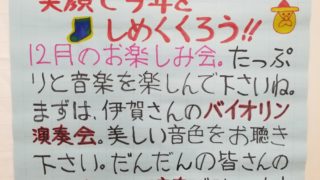 笑顔で今年を
しめくくろう!!
12月のお楽しみ会。たっぷ
りと音楽を楽しんで下さいね。
まずは、伊賀さんのバイオリン
演奏会。美しい音色をお聴き
下さい。だんだんの皆さんの